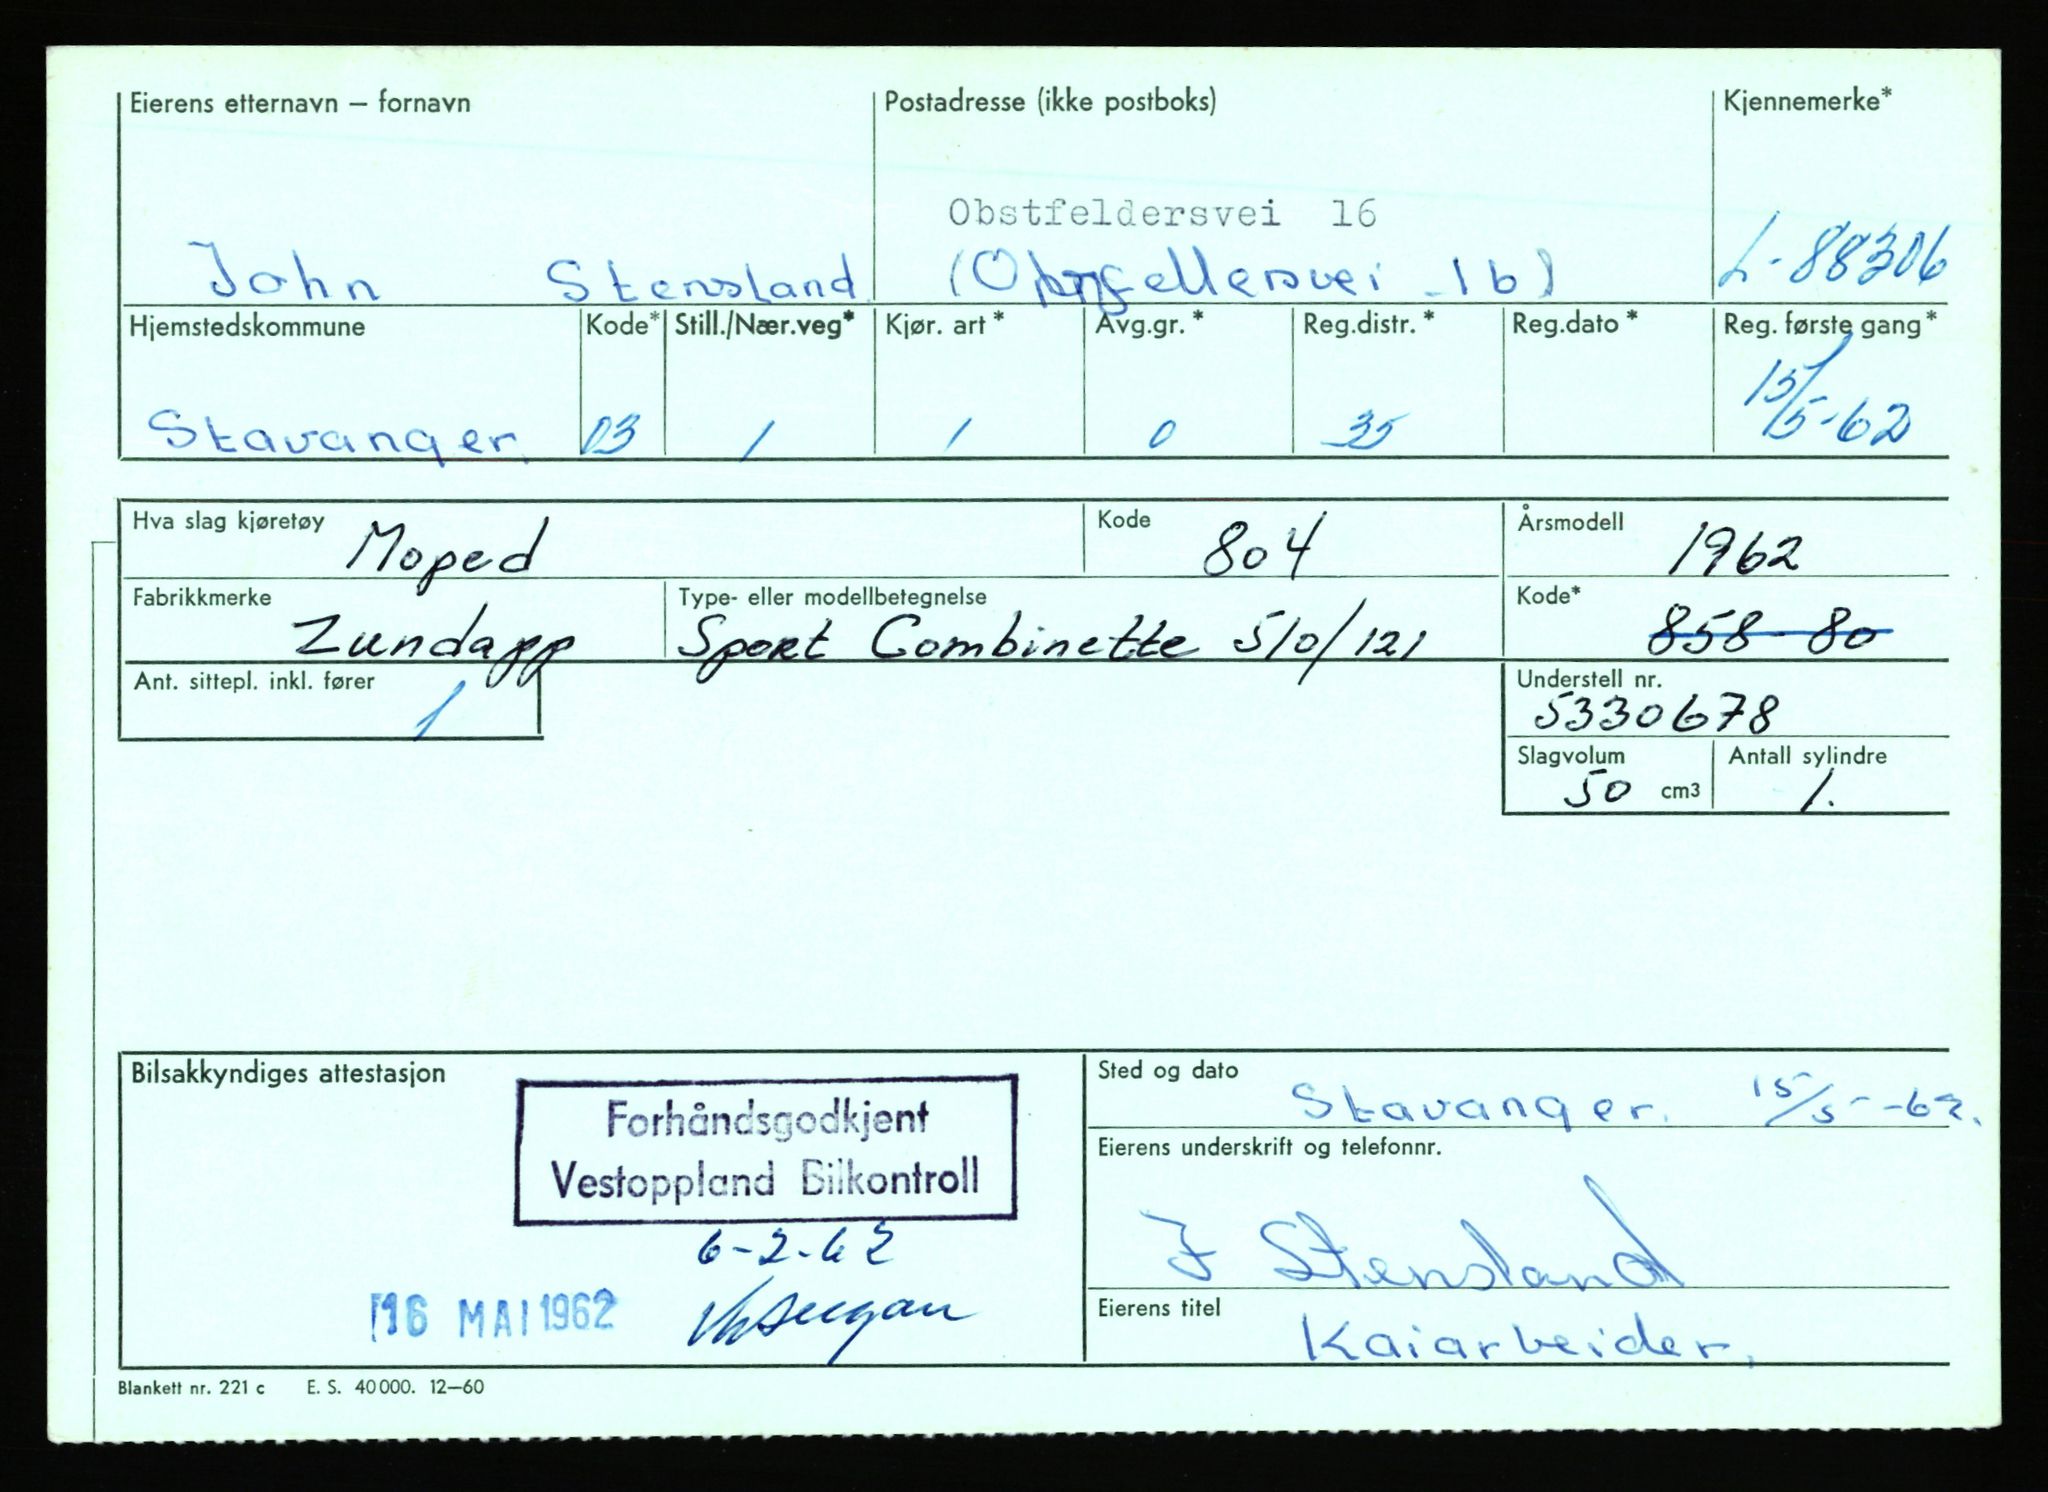 Eierens etternavn – fornavn Postadresse (ikke postboks) Kjennemerke*
Obstfeldersvei 16
John Stensland (Obsfellersvei 16) L-88306
Hjemstedskommune Kode* Still./Nær.veg* Kjør. art* Avg.gr.* Reg.distr.* Reg.dato* Reg. første gang*
Stavanger. 03 1 1 0 35 15/5-62
Hva slag kjøretøy Moped Kode 804 Årsmodell 1962
Fabrikkmerke Zundapp Type- eller modellbetegnelse Sport Combinette 510/121 Kode* 858-80
Ant. sittepl. inkl. fører 1 Understell nr.
5330678
Slagvolum 50 cm3 Antall sylindre 1.
Bilsakkyndiges attestasjon Sted og dato Stavanger. 15/5-62.
Forhåndsgodkjent
Vestoppland Bilkontroll
6-2-62
Eierens underskrift og telefonnr.
J Stensland
16 MAI 1962
Eierens titel Kaiarbeider.
Blankett nr. 221 c E. S. 40000. 12—60